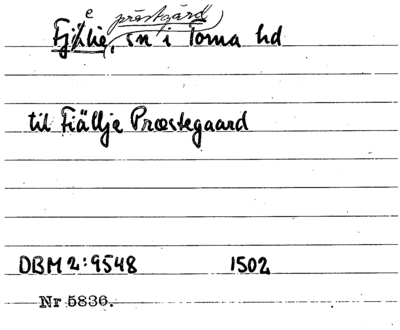 Fjelie, prästgård, sn i Torna hd
til Fiällje Præstegaard
DBM 2:9548 1502
Nr 5836.